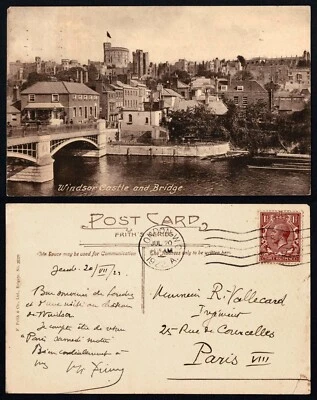 Windsor Castle and Bridge
POST CARD
FRITH'S
This Space may be used for Communication
Address only to be written here.
LONDON
JUL 20
AM
Jeudi 20/VII/
Bon souvenir de Londres
et d'une visite au château
de Windsor
Je compte être de retour
Paris samedi matin
Bien cordialement à
vs
Monsieur R. Vallecard
Ingénieur
25 Rue de Courcelles
Paris VIII